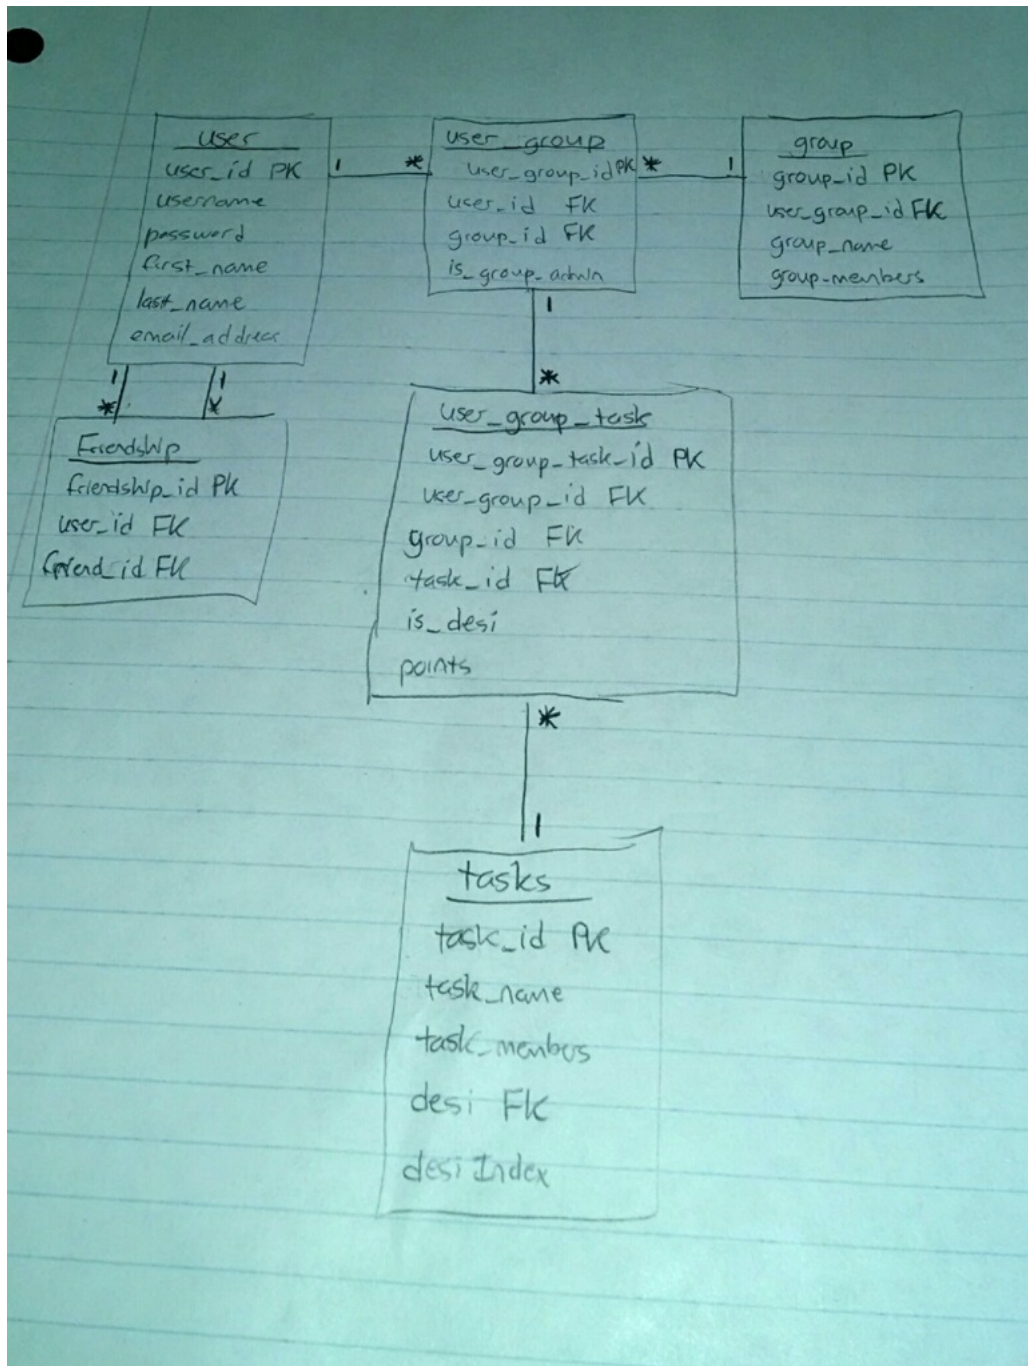 user
user_id PK
username
password
first_name
last_name
email_address
1
*
user_group
user_group_id PK
user_id FK
group_id FK
is_group_admin
*
1
group
group_id PK
user_group_id FK
group_name
group_members
1
1
*
*
Friendship
friendship_id PK
user_id FK
friend_id FK
1
*
user_group_task
user_group_task_id PK
user_group_id FK
group_id FK
task_id FK
is_desi
points
*
1
tasks
task_id PK
task_name
task_members
desi FK
desi Index